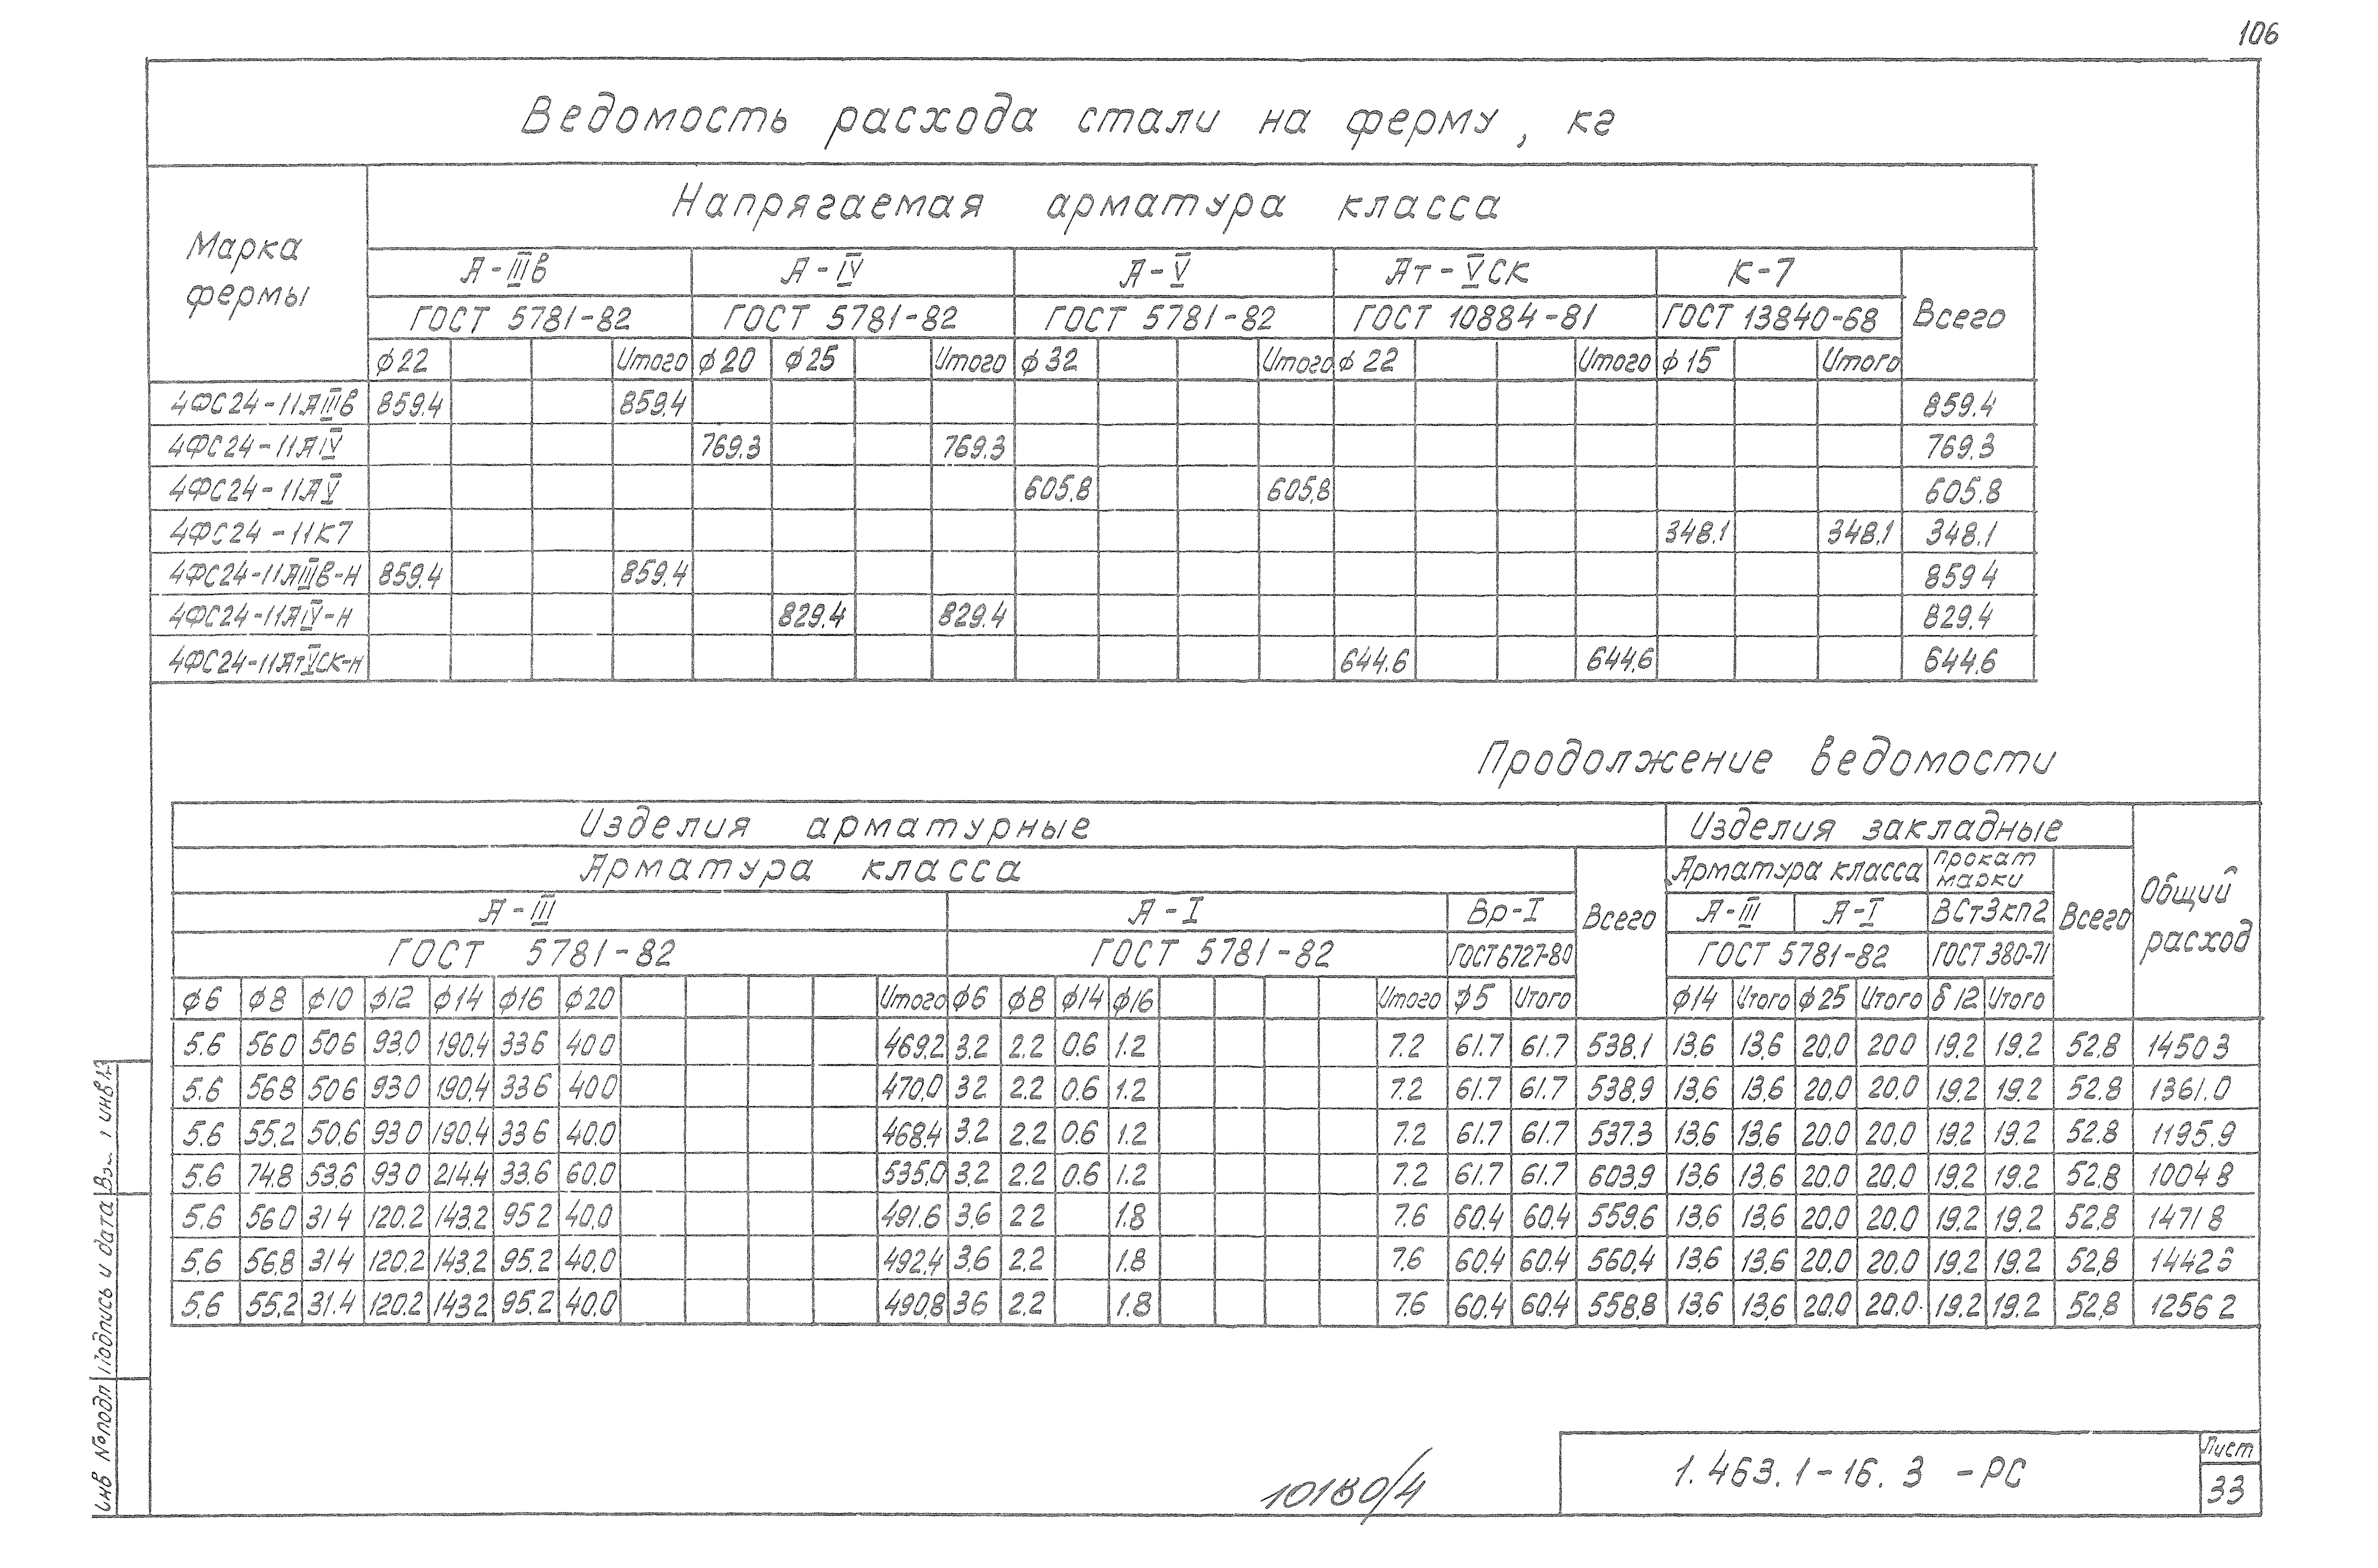 106
Ведомость расхода стали на ферму, кг
Марка фермы
Напрягаемая арматура класса
А-IIIв А-IV А-V Ат-VСК К-7 Всего
ГОСТ 5781-82 ГОСТ 5781-82 ГОСТ 5781-82 ГОСТ 10884-81 ГОСТ 13840-68
ф22 Итого ф20 ф25 Итого ф32 Итого ф22 Итого ф15 Итого
4ФС24-11АIIIв 859.4 859.4 859.4
4ФС24-11АIV 769.3 769.3 769.3
4ФС24-11АV 605.8 605.8 605.8
4ФС24-11К7 348.1 348.1 348.1
4ФС24-11АIIIв-Н 859.4 859.4 859 4
4ФС24-11АIV-Н 829.4 829.4 829.4
4ФС24-11АтVСК-Н 644.6 644.6 644.6
Продолжение ведомости
Изделия арматурные Изделия закладные Общий расход
Арматура класса Всего Арматура класса прокат марки Всего
А-III А-I Вр-I А-III А-I ВСт3кп2
ГОСТ 5781-82 ГОСТ 5781-82 ГОСТ 6727-80 ГОСТ 5781-82 ГОСТ 380-71
ф6 ф8 ф10 ф12 ф14 ф16 ф20 Итого ф6 ф8 ф14 ф16 Итого ф5 Итого ф14 Итого ф25 Итого δ12 Итого
5.6 56 0 50 6 93.0 190.4 33 6 40 0 469.2 3.2 2.2 0.6 1.2 7.2 61.7 61.7 538.1 13.6 13.6 20.0 20 0 19.2 19.2 52.8 1450 3
5.6 56 8 50 6 93 0 190.4 33 6 40 0 470.0 3 2 2.2 0.6 1.2 7.2 61.7 61.7 538.9 13.6 13.6 20.0 20.0 19.2 19.2 52.8 1361.0
5.6 55.2 50.6 93 0 190.4 33 6 40.0 468.4 3.2 2.2 0.6 1.2 7.2 61.7 61.7 537.3 13.6 13.6 20.0 20.0 19.2 19.2 52.8 1195.9
5.6 74.8 53.6 93 0 214.4 33.6 60.0 535.0 3.2 2.2 0.6 1.2 7.2 61.7 61.7 603.9 13.6 13.6 20.0 20.0 19.2 19.2 52.8 1004 8
5.6 56.0 31 4 120.2 143.2 95 2 40.0 491.6 3.6 2 2 1.8 7.6 60.4 60.4 559.6 13.6 13.6 20.0 20.0 19.2 19.2 52.8 1471 8
5.6 56.8 31 4 120.2 143.2 95.2 40.0 492.4 3.6 2.2 1.8 7.6 60.4 60.4 560.4 13.6 13.6 20.0 20.0 19.2 19.2 52.8 1442 6
5.6 55.2 31.4 120.2 143 2 95.2 40.0 490.8 3 6 2.2 1.8 7.6 60.4 60.4 558.8 13.6 13.6 20.0 20.0 19.2 19.2 52.8 1256 2
Инв №подл Подпись и дата
10180/4
1.463.1-16.3 -РС
Лист
33